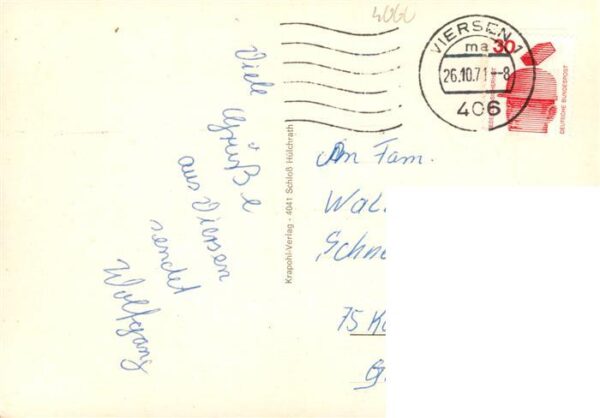 4060
VIERSEN 1
ma
26.10.71-8
406
30
DEUTSCHE BUNDESPOST
Viele
Grüße
aus Viersen
sendet
Wolfgang
Krapohl-Verlag - 4041 Schloß Hülchrath
An Fam.
Wal
Schne
75 K